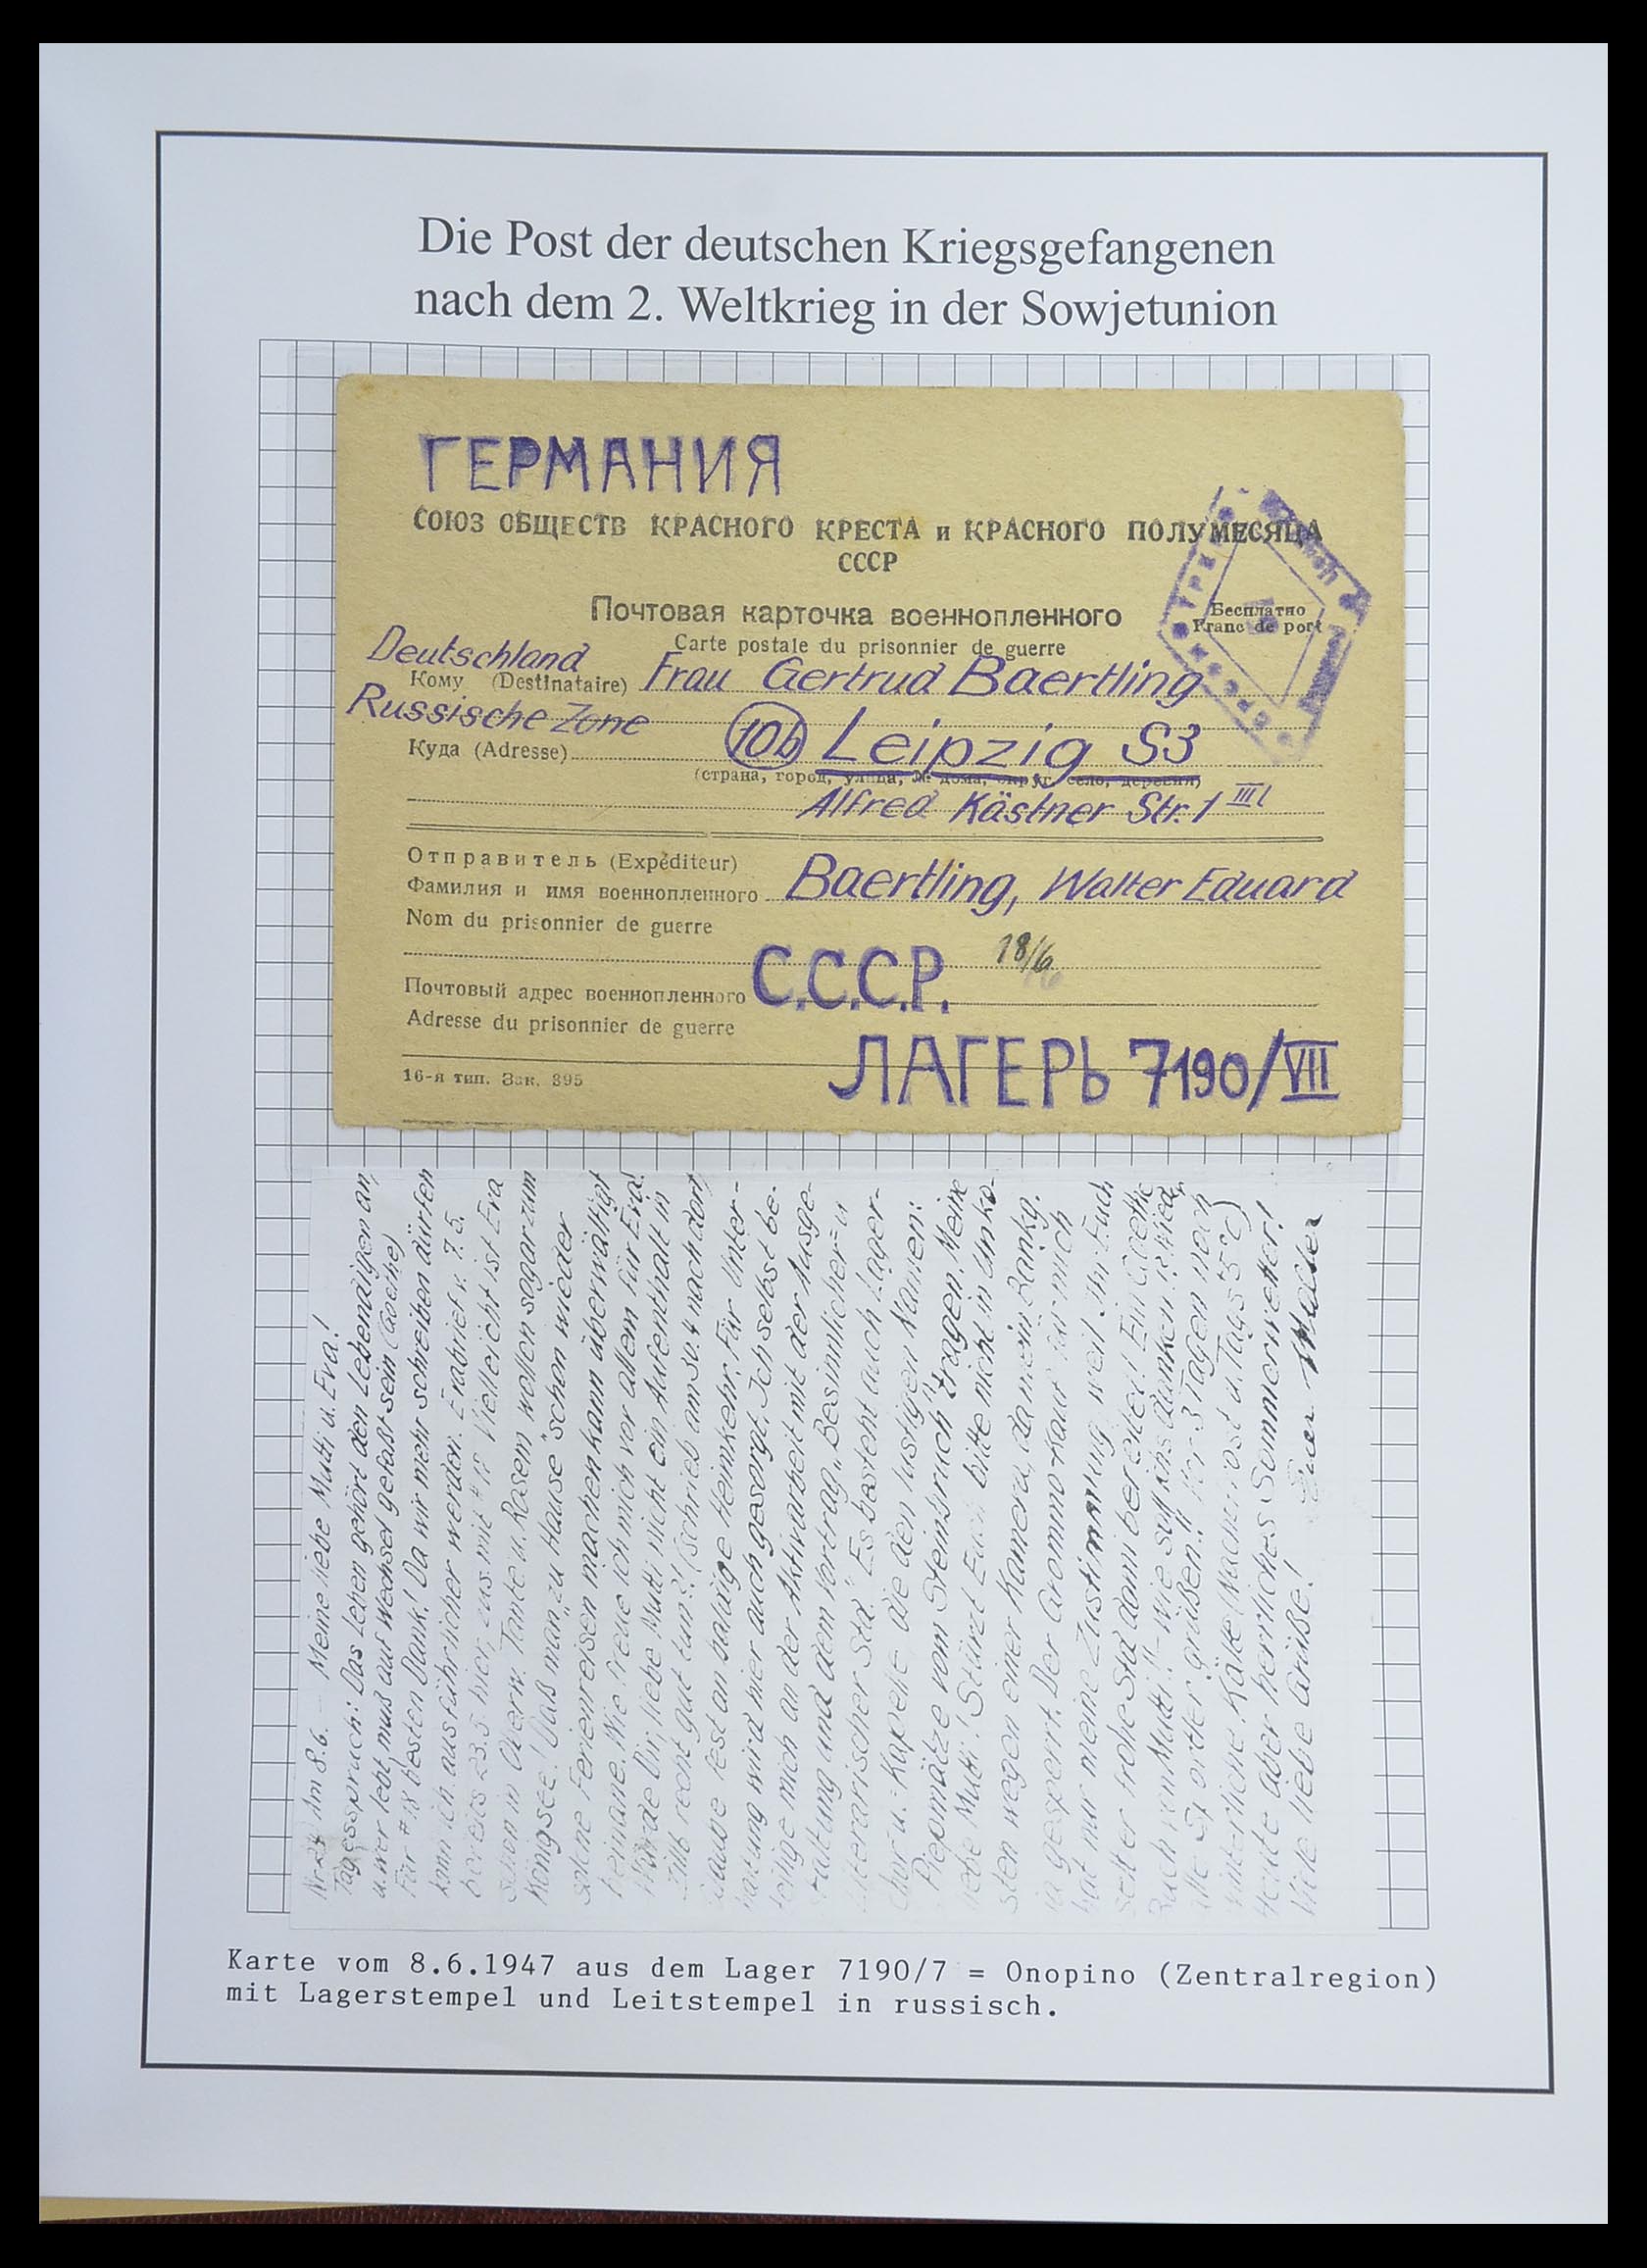 Die Post der deutschen Kriegsgefangenen
nach dem 2. Weltkrieg in der Sowjetunion
ГЕРМАНИЯ
СОЮЗ ОБЩЕСТВ КРАСНОГО КРЕСТА и КРАСНОГО ПОЛУМЕСЯЦА
СССР
Почтовая карточка военнопленного
Бесплатно
Franc de port
Carte postale du prisonnier de guerre
Deutschland
Кому (Destinataire) Frau Gertrud Baertling
Russische Zone
10b Leipzig S3
Куда (Adresse)
(страна, город, улица, № дома, округ, село, деревня)
Alfred Kästner Str. 1 III l
Отправитель (Expéditeur)
Фамилия и имя военнопленного Baertling, Walter Eduard
Nom du prisonnier de guerre
18/6
Почтовый адрес военнопленного С.С.С.Р.
Adresse du prisonnier de guerre
ЛАГЕРЬ 7190/VII
16-я тип. Зак. 395
Am 8.6. Meine liebe Mutti u. Eva!
Tagesspruch: Das Leben gehört den Lebendigen an,
u. wer lebt, muß auf Wechsel gefaßt sein (Goethe)
Für #18 besten Dank! Da wir mehr schreiben dürfen
kann ich ausführlicher werden. v. 7.5.
bereits 23.5. hier, zus. mit #18 Vielleicht ist Eva
schon in Tante u. Rasem wollen sogar zum
Königsee! Daß man "zu Hause" schon wieder
solche Ferienreisen machen kann überwältigt
beinahe. Wie freue ich mich vor allem für Eva!
Würde Dir, liebe Mutti nicht ein Aufenthalt in
recht gut tun?! (schrieb am 30.4 nach dort)
fest an baldige Heimkehr. Für Unter-
haltung wird hier auch gesorgt. Ich selbst be-
teilige mich an der Aktivarbeit mit der Ausge-
staltung und dem Vortrag "Besinnlicher- u
literarischer Std." Es besteht auch Lager-
chor u. -Kapelle die den lustigen Namen:
"Piepmätze vom Steinbruch" tragen. Meine
liebe Mutti! Stürzt Euch bitte nicht in Unko-
sten wegen einer Kamera, da mein Bankg.
ja gesperrt. Der Grammo-Kauf für mich
hat nur meine Zustimmung weil Ihr Euch
selber frohe Std. dann bereitet! Ein Goethe
Buch von Mutti!! - wie soll ichs danken?
alle grüßen!! Vor 3 Tagen noch
winterliche Kälte
Heute aber herrliches Sommerwetter!
Viele liebe Grüße! Euer Walter
Karte vom 8.6.1947 aus dem Lager 7190/7 = Onopino (Zentralregion)
mit Lagerstempel und Leitstempel in russisch.